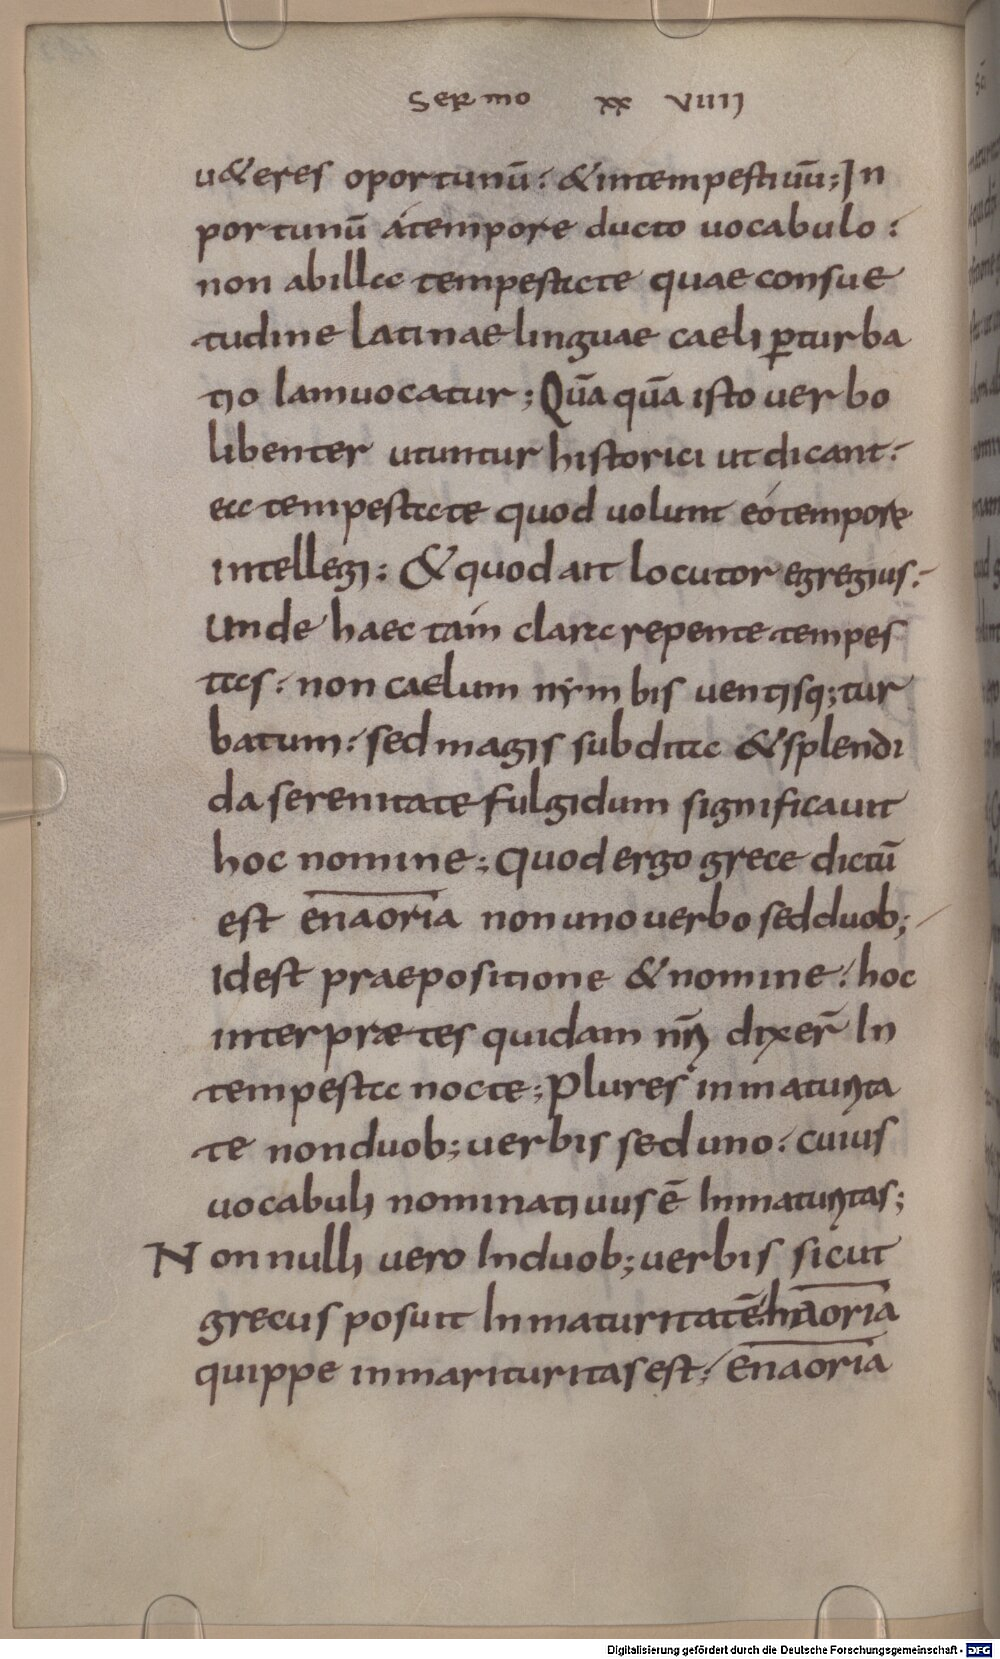 Sermo xx viiii
u&eres oportunū: &intempestiuū; In
portunū átempore ducto uocabulo:
non abilla tempestate quae consue
tudine latinae linguae caeli p̱turba
tio iamuocatur; Quāquā isto uerbo
libenter utuntur historici ut dicant:
ea tempestate quod uolunt eótempore
intellegi: &quod ait locutor egregius:
unde haec tám clara repente tempes
tas: non caelum nymbis uentisq; tur
batum: sed magis subdita &splendi
da serenitate fulgidum significauit
hoc nomine; Quod ergo grece dictū
est e̅n̅a̅o̅r̅i̅a̅ non uno uerbo sed duob;
Idest praepositione &nomine: hoc
interpraetes quidam nr̄i dixer̄ In
tempesta nocte; Plures inmaturita
te non duob; uerbis sed uno: cuius
uocabuli nominatiuus ē Inmaturitas;
Non nulli uero Induob; uerbis sicut
grecus posuit In maturitatē: h̅n̅a̅o̅r̅i̅a̅
quippe inmarituritas est: e̅n̅a̅o̅r̅i̅a̅
Digitalisierung gefördert durch die Deutsche Forschungsgemeinschaft - DFG